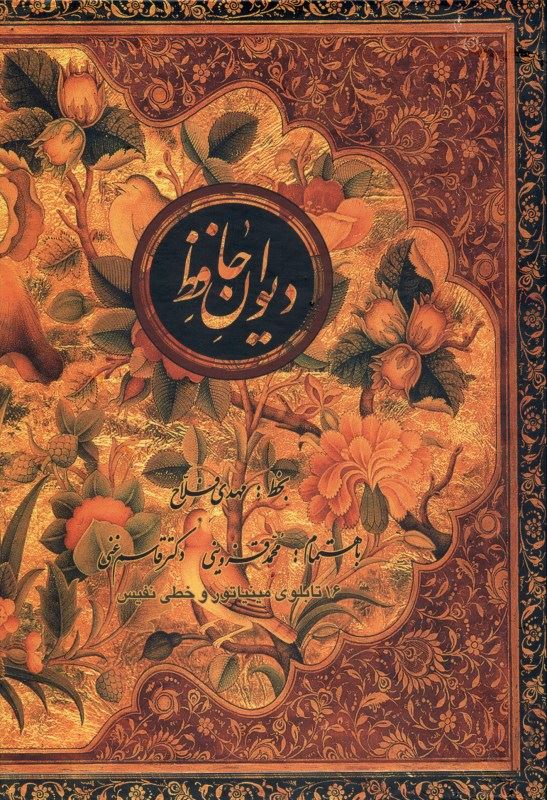 دیوان حافظ
بخط: مهدی فلاح
باهتمام: محمد قزوینی دکتر قاسم غنی
۱۶ تابلوی مینیاتور و خطی نفیس